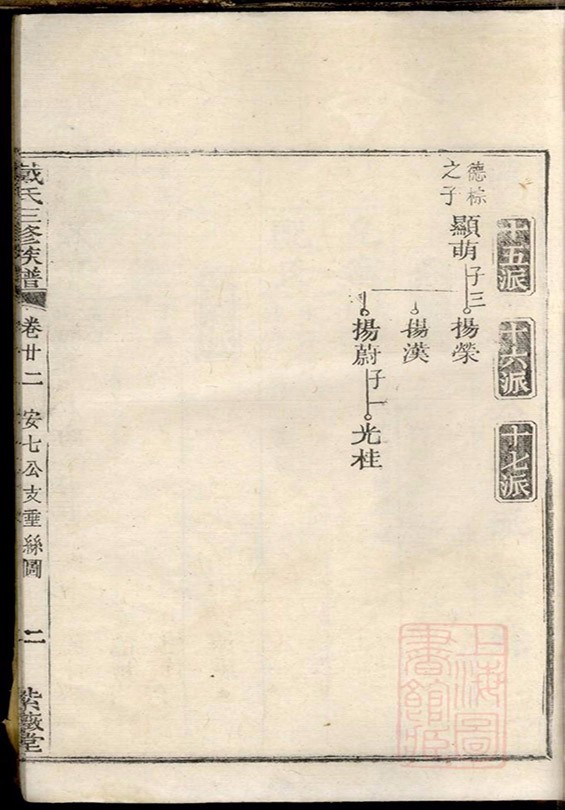 十五派
十六派
十七派
德棕
之子
顯萌
子三
揚榮
揚漢
揚蔚
子一
光桂
戴氏三修族譜
卷廿二
安七公支垂絲圖
二
紫薇堂
上海圖
書館藏